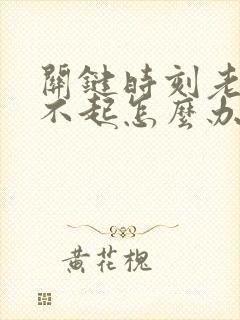 關鍵時刻老
不起怎麼办
黃花槐